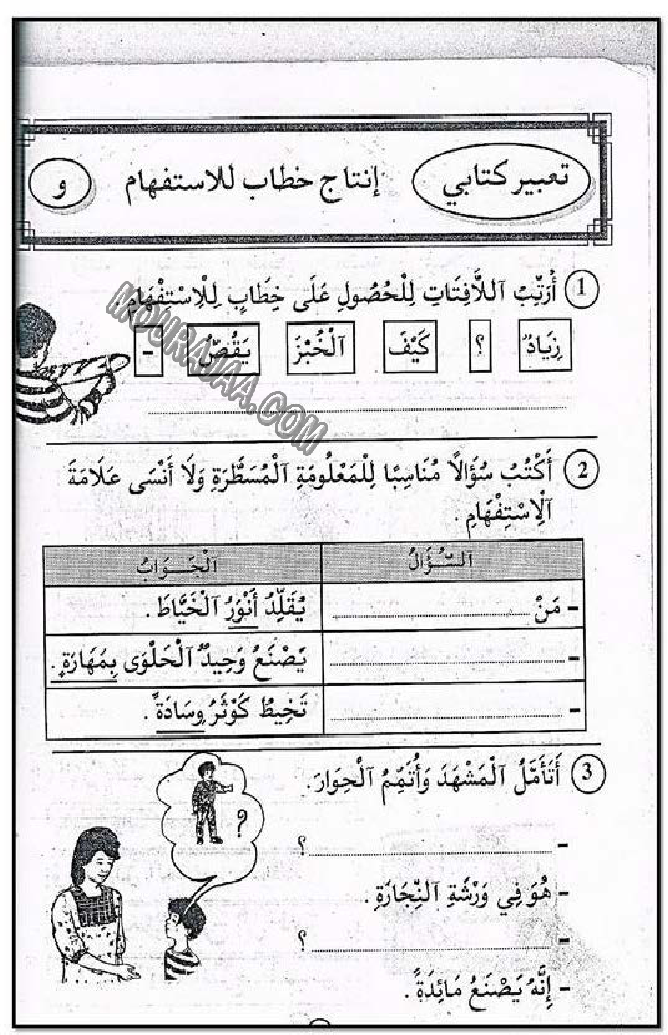 تعبير كتابي إنتاج خطاب للاستفهام و
1 أُرَتِّبُ اَللاَّفِتَاتِ لِلْحُصُولِ عَلَى خِطَابٍ لِلْاِسْتِفْهَامِ.
زِيَادٌ ؟ كَيْفَ اَلْخُبْزَ يَقُصُّ -
MOURAJAA.COM
2 أَكْتُبُ سُؤَالًا مُنَاسِبًا لِلْمَعْلُومَةِ اَلْمُسَطَّرَةِ وَلَا أَنْسَى عَلَامَةَ
اَلْاِسْتِفْهَامِ.
اَلسُّؤَالُ اَلْجَوَابُ
- مَنْ .......... يُقَلِّدُ أَنْوَرُ اَلْخَيَّاطَ.
- .......... يَصْنَعُ وَحِيدٌ اَلْحَلْوَى بِمَهَارَةٍ.
- .......... تَخِيطُ كَوْثَرُ وِسَادَةً.
3 أَتَأَمَّلُ اَلْمَشْهَدَ وَأُتَمِّمُ اَلْحِوَارَ.
?
- .......... ؟
- هُوَ فِي وَرْشَةِ اَلنِّجَارَةِ.
- .......... ؟
- إِنَّهُ يَصْنَعُ مَائِدَةً.